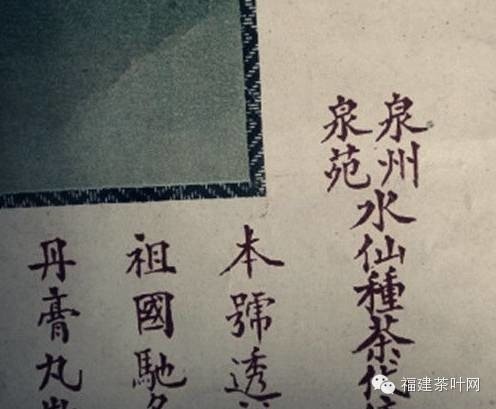 泉州
泉苑
水仙種茶代
本號透
祖國馳名
丹膏丸
福建茶叶网